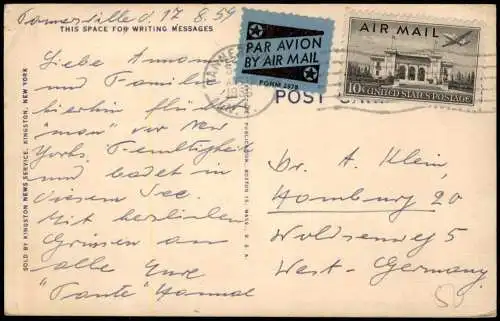 Tannersville d. 17. 8. 59
THIS SPACE FOR WRITING MESSAGES
PAR AVION
BY AIR MAIL
FORM 2978
AIR MAIL
10¢ UNITED STATES POSTAGE
POST
Liebe Annema
und Familie
hierhin flüchtet
"man" vor New
Yorks Feuchtigkeit
und badet in
diesem See.
Mit herzlichen
Grüssen an
alle Eure
"Tante" Hannah
Dr. A. Klein,
Hamburg 20
Woldsenweg 5
West-Germany
SOLD BY KINGSTON NEWS SERVICE, KINGSTON, NEW YORK
BOSTON 15, MASS., U. S. A.